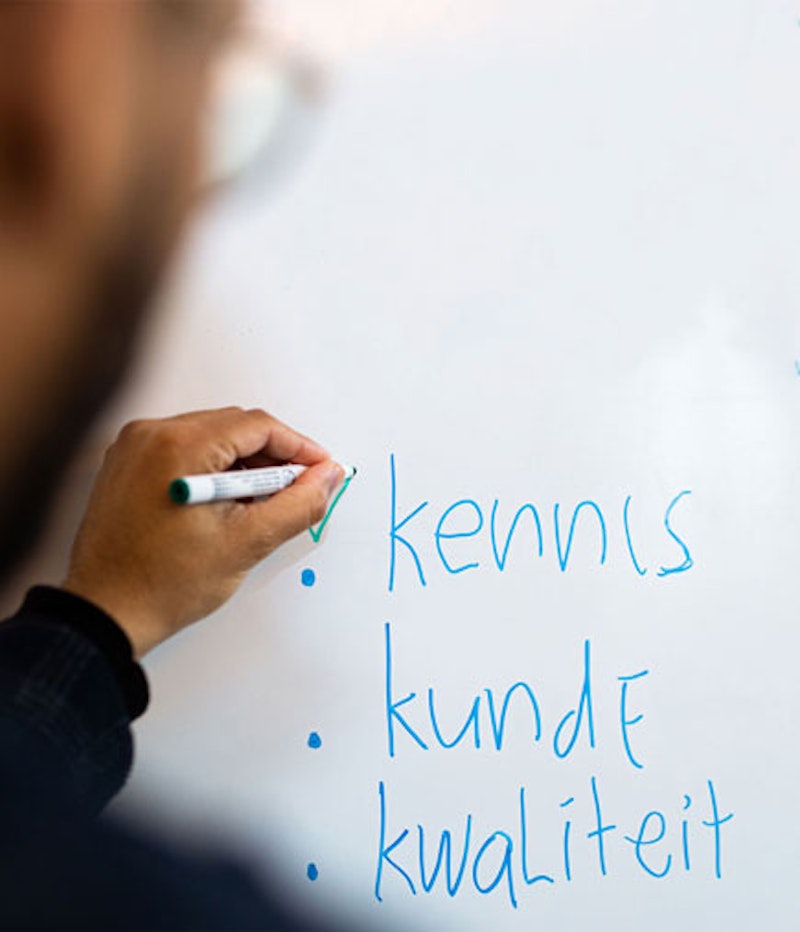 kennis
kundE
kwaliteit